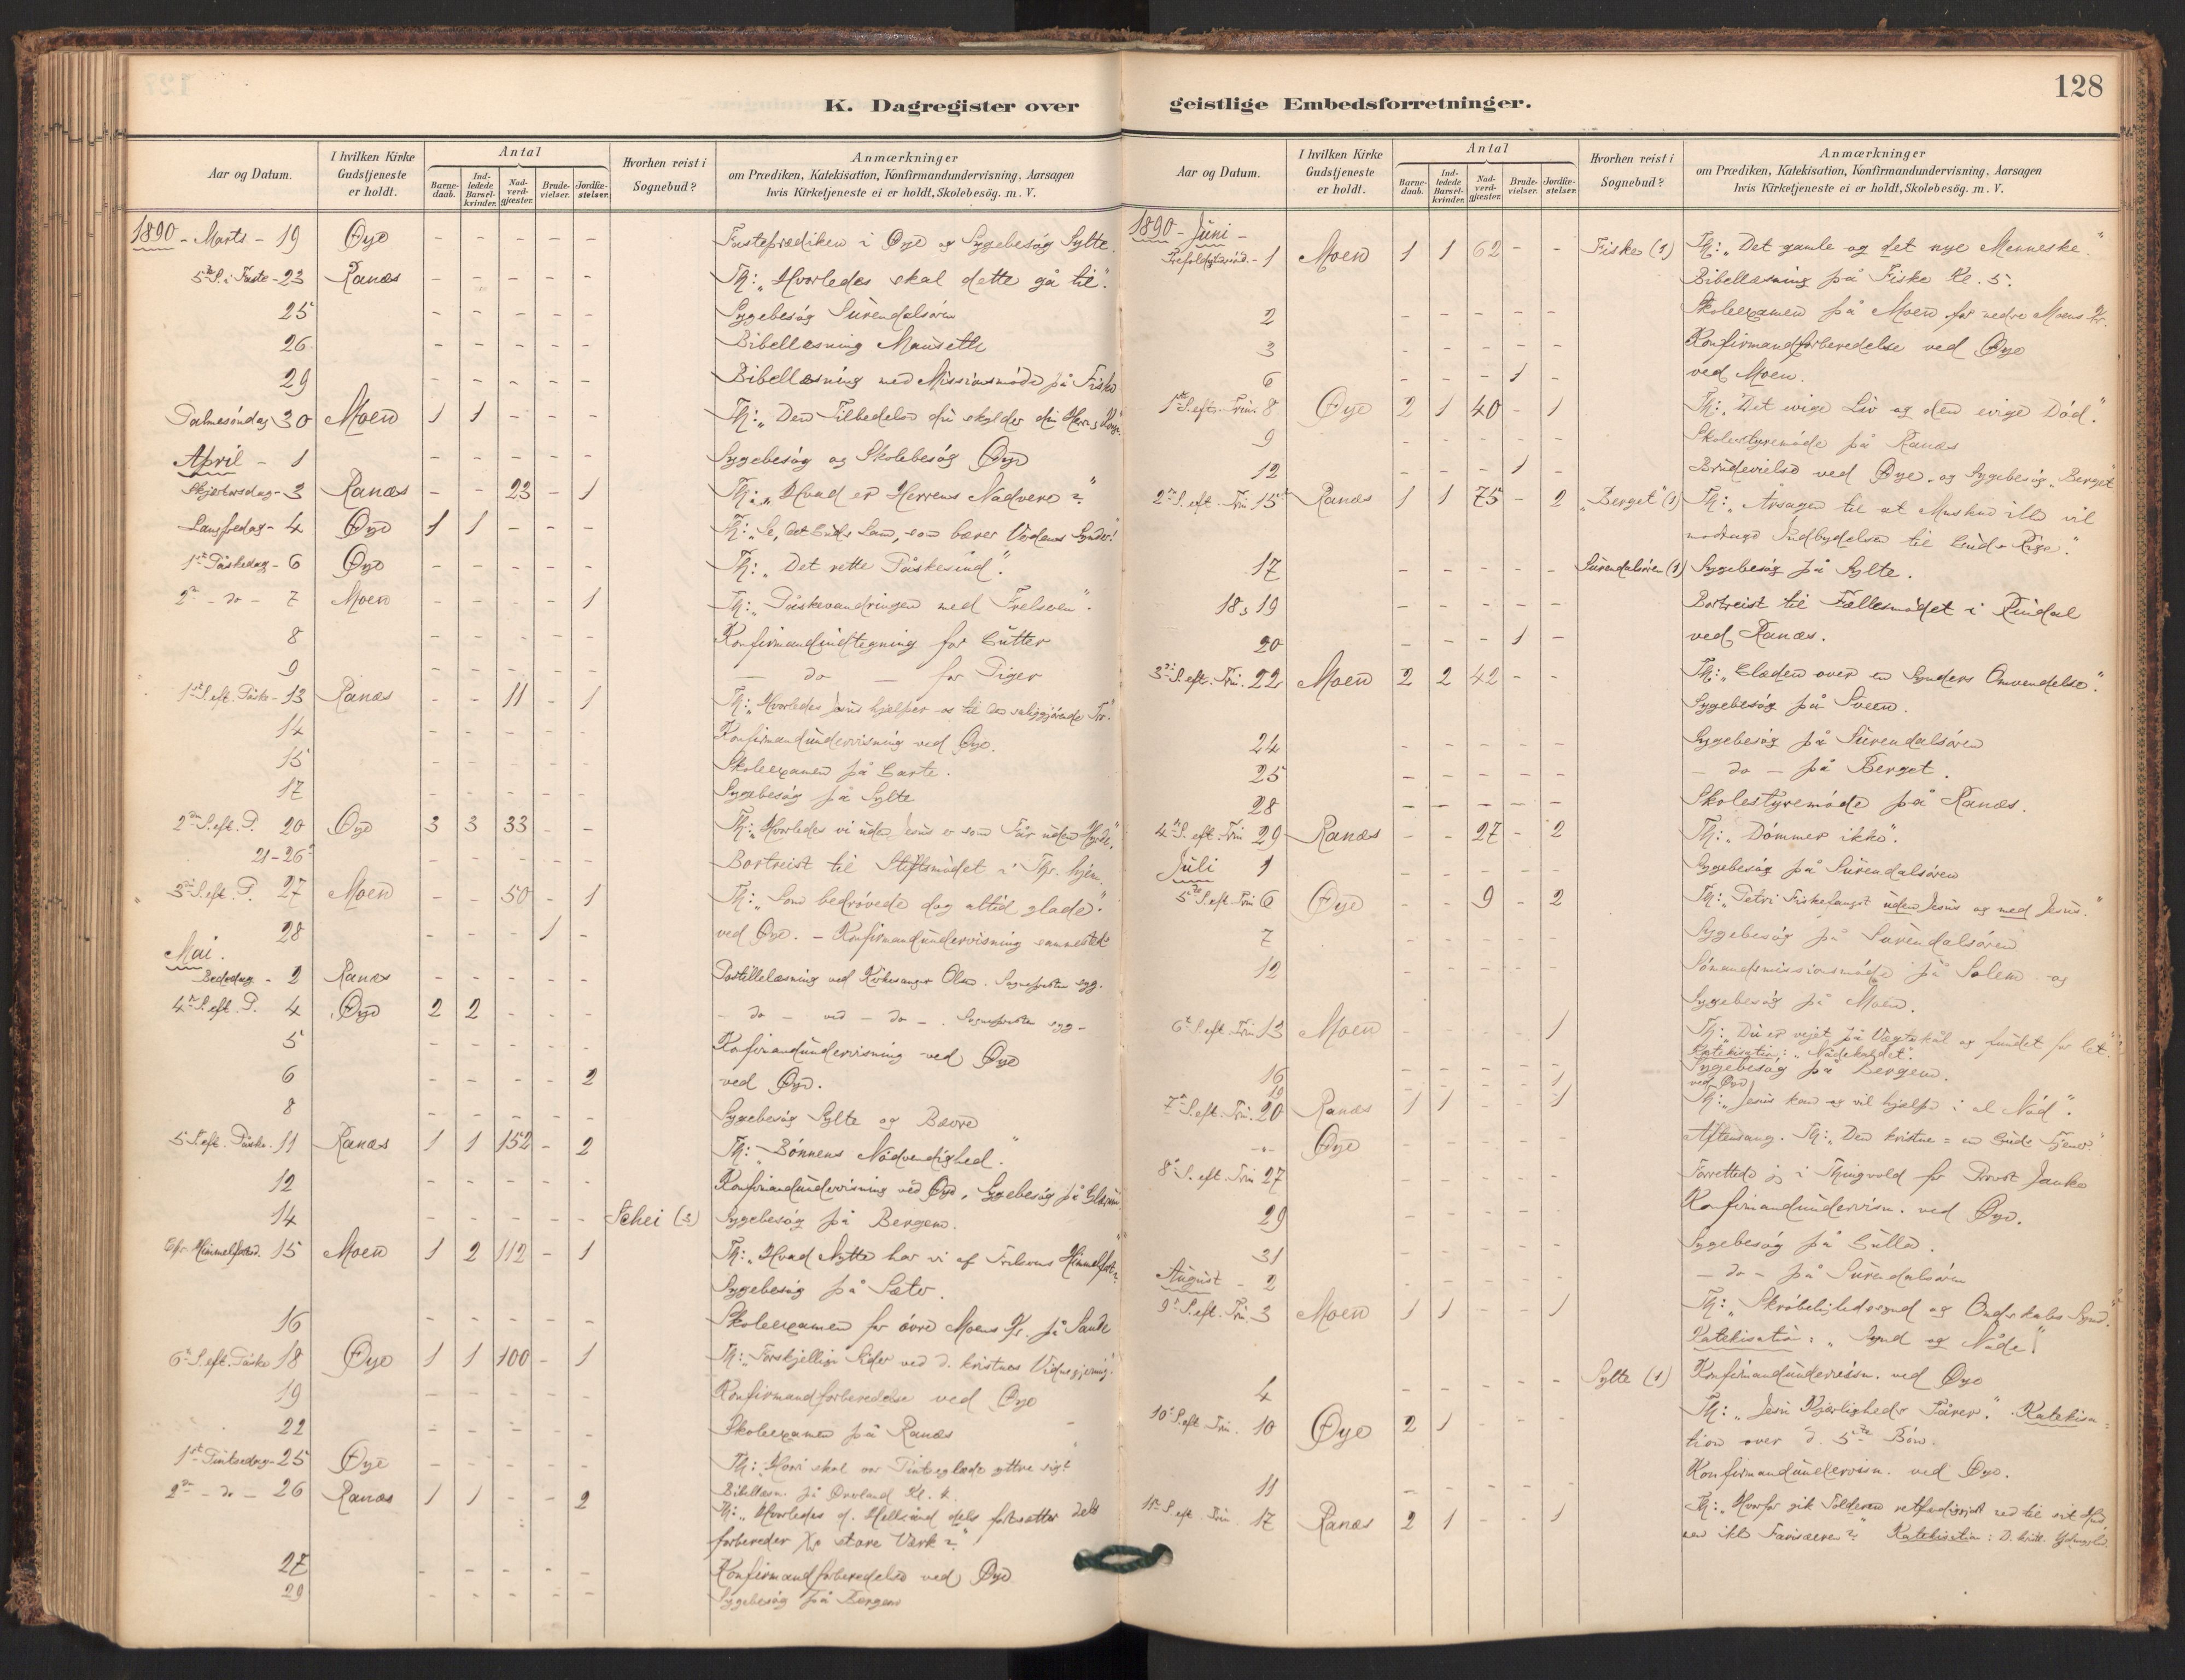 128
K. Dagregister over geistlige Embedsforretninger.
Aar og Datum. I hvilken Kirke Gudstjeneste er holdt. Antal Barne-daab. Ind-ledede Barsel-kvinder. Nad-verd-gjæster. Brude-vielser. Jordfæ-stelser. Hvorhen reist i Sognebud? Anmærkninger om Prædiken, Katekisation, Konfirmandundervisning, Aarsagen hvis Kirketjeneste ei er holdt, Skolebesög. m. V.
1890 - Marts - 19 Øye - - - - - Fasteprædiken i Øye og Sygebesøg Sylte.
5te S. i Faste - 23 Ranæs - - - - - Th: „Hvorledes skal dette gå til".
25 - - - - - Sygebesøg Surendalsøren
26 - - - - - Bibellæsning Mauseth
29 - - - - - Bibellæsning med Missionsmøde på Fiske
Palmesøndag 30 Moen 1 1 - - - Th: „Den Tilbedelse du skylder din Herre &
April - 1 - - - - - Sygebesøg og Skolebesøg Øye
Skjærtorsdag - 3 Ranæs - - 23 - 1 Th: „Hvad er Herrens Nadvere?"
Langfredag - 4 Øye 1 1 - - - Th: „Se, det Guds Lam, som bærer Verdens Synder!
1ste Påskedag - 6 Øye - - - - - Th: „Det rette Påskesind".
2den - do - 7 Moen - - - - 1 Th: „Påskevandringen med Frelseren".
8 - - - - - Konfirmandindtegning for Gutter
9 - - - - - - do - for Piger
1ste S. eft. Påske - 13 Ranæs - - 11 - 1 Th: „Hvorledes Jesus hjælper os til den saliggjørende Tro".
14 - - - - - Konfirmandundervisning ved Øye.
15 - - - - - Skoleexamen på Garte.
17 - - - - - Sygebesøg på Sylte
2den S. eft. P. 20 Øye 3 3 33 - - Th: „Hvorledes vi uden Jesus er som Får uden Hyrde".
21-26 - - - - - Bortreist til Stiftsmødet i Thr. hjem.
3die S. eft. P. 27 Moen - - 50 - 1 Th: „Som bedrøvede dog altid glade".
28 - - - 1 ved Øye. - Konfirmandundervisning sammesteds
Mai.
Bededag - 2 Ranæs - - - - - Postillelæsning ved Kirkesanger Olsen. Sognepresten syg.
4de S. eft. P. 4 Øye 2 2 - - - - do - ved - do - . Sognepresten syg -
5 - - - - - Konfirmandundervisning ved Øye
6 - - - - 2 ved Øye.
8 - - - - - Sygebesøg Sylte og Bævre
5 S. eft. Påske. 11 Ranæs 1 1 152 - 2 Th: „Bønnens Nødvendighed."
12 - - - - - Konfirmandundervisning ved Øye, Sygebesøg på Glærum
14 - - - - - Schei (2) Sygebesøg på Bergem.
Chr. Himmelfartsd. 15 Moen 1 2 112 - 1 Th: „Hvad Nytte har vi af Frelserens Himmelfart?"
Sygebesøg på Sæter.
16 - - - - - Skoleexamen for øvre Moens Kr. på Sande
6te S. eft. Påske 18 Øye 1 1 100 - 1 Th: „Forskjellige Sider ved d. kristnes Vidnegjerning".
19 - - - - - Konfirmandforberedelse ved Øye
22 - - - - - Skoleexamen på Ranæs
1ste Pintsedag - 25 Øye - - - - - Th: „Hvori skal vor Pintseglæde yttre sig?"
Bibellæsn. på Øvrland Kl.
2den - do - 26 Ranæs 1 1 - - 2 Th: „Hvorledes d. Helligånd dels fortsætter dels
forbereder store Værk?"
27 - - - - - Konfirmandforberedelse ved Øye
29 - - - - - Sygebesøg på Bergem
Aar og Datum. I hvilken Kirke Gudstjeneste er holdt. Antal Barne-daab. Ind-ledede Barsel-kvinder. Nad-verd-gjæster. Brude-vielser. Jordfæ-stelser. Hvorhen reist i Sognebud? Anmærkninger om Prædiken, Katekisation, Konfirmandundervisning, Aarsagen hvis Kirketjeneste ei er holdt, Skolebesög. m. V.
1890 - Juni -
Trefoldighedssønd. - 1 Moen 1 1 62 - - Fiske (1) Th: „Det gamle og det nye Menneske."
Bibellæsning på Fiske Kl. 5.
2 - - - - - Skoleexamen på Moen for nedre Moens Kr.
3 - - - - - Konfirmandforberedelse ved Øye
6 - - - 1 - ved Moen.
1ste S. eft. Trin. 8 Øye 2 1 40 - 1 Th: „Det evige Liv og den evige Død."
9 - - - - - Skolestyremøde på Ranæs
12 - - - 1 - Brudevielse ved Øye. og Sygebesøg „Berget"
2den S. eft. Trin. 15 Ranæs 1 1 75 - 2 „Berget" (1) Th: „Årsagen til at Mennesket ikke vil
modtage Indbydelsen til Guds Rige."
17 - - - - - Surendalsøren (1) Sygebesøg på Sylte.
18 & 19 - - - - - Bortreist til Fællesmødet i Rindal
20 - - - 1 - ved Ranæs.
3die S. eft. Trin. 22 Moen 2 2 42 - - Th: „Glæden over en Synders Omvendelse".
Sygebesøg på Sveen.
24 - - - - - Sygebesøg på Surendalsøren
25 - - - - - - do - på Berget.
28 - - - - - Skolestyremøde på Ranæs.
4de S. eft. Trin 29 Ranæs - - 27 - 2 Th: „Dømmer ikke".
Juli 1 - - - - - Sygebesøg på Surendalsøren
5te S. eft. Trin 6 Øye - - 9 - 2 Th: „Petri Fiskefangst uden Jesus og med Jesus."
7 - - - - - Sygebesøg på Surendalsøren
12 - - - - - Sømandsmissionsmøde på Salem og
Sygebesøg på Moen.
6te S. eft. Trin 13 Moen - - - - 1 Th: „Du er vejet på Vægtskål og fundet for let."
Katekisation: „Nådekaldet".
16 - - - - - Sygebesøg på Bergem.
19 - - - - 1 ved Øye
7de S. eft. Trin. 20 Ranæs 1 1 - - 1 Th: „Jesus kan og vil hjælpe i al Nød".
- " - Øye - - - - - Aftensang. Th: „Den kristne = en Guds Tjener."
8de S. eft. Trin 27 - - - - - Forrettede jeg i Thingvold for Provst Janke
29 - - - - - Konfirmandundervisn. ved Øye.
31 - - - - - Sygebesøg på Gulla.
August - 2 - - - - - - do - på Surendalsøren
9de S. eft. Trin. 3 Moen 1 1 - - 1 Th: „Skrøbelighedssynd og Ondskabs Synd."
Katekisation: „Synd og Nåde"
4 - - - - - Sylte (1) Konfirmandundervisn. ved Øye
10de S. eft. Trin. 10 Øye 2 1 - - - Th: „Jesu Kjærligheds Tårer." Katekisa-
tion over d. 5te Bøn.
11 - - - - - Konfirmandundervisn. ved Øye.
11te S. eft. Trin. 17 Ranæs 2 1 - - 1 Th: „Hvorfor gik Tolderen retfærdiggjort ned til sit Hus
men ikke Farisæeren?" Katekisation: D. krist.